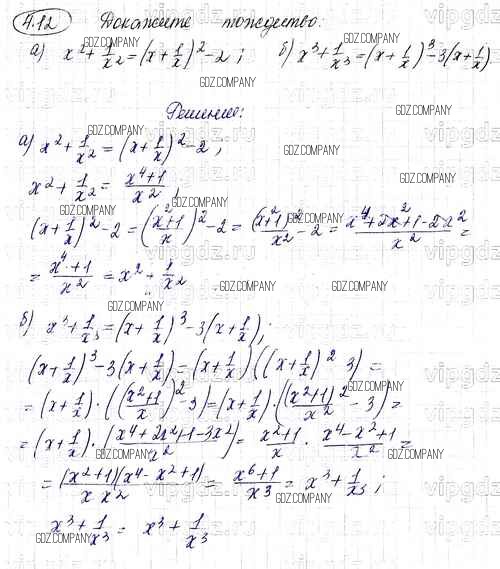 4.12 Докажите тождество:
а) x² + 1/x² = (x + 1/x)² - 2; б) x³ + 1/x³ = (x + 1/x)³ - 3(x + 1/x).
Решение:
а) x² + 1/x² = (x + 1/x)² - 2;
x² + 1/x² = (x⁴+1)/x²;
(x + 1/x)² - 2 = ((x²+1)/x)² - 2 = (x²+1)²/x² - 2 = (x⁴+2x²+1-2x²)/x² =
= (x⁴+1)/x² = x² + 1/x²
б) x³ + 1/x³ = (x + 1/x)³ - 3(x + 1/x);
(x + 1/x)³ - 3(x + 1/x) = (x + 1/x)((x + 1/x)² - 3) =
= (x + 1/x) · (((x²+1)/x)² - 3) = (x + 1/x) · ((x²+1)²/x² - 3) =
= (x + 1/x) · ((x⁴+2x²+1-3x²)/x²) = (x²+1)/x · (x⁴-x²+1)/x² =
= (x²+1)(x⁴-x²+1)/(x x²) = (x⁶+1)/x³ = x³ + 1/x³;
x³ + 1/x³ = x³ + 1/x³
GDZ.COMPANY
vipgdz.ru